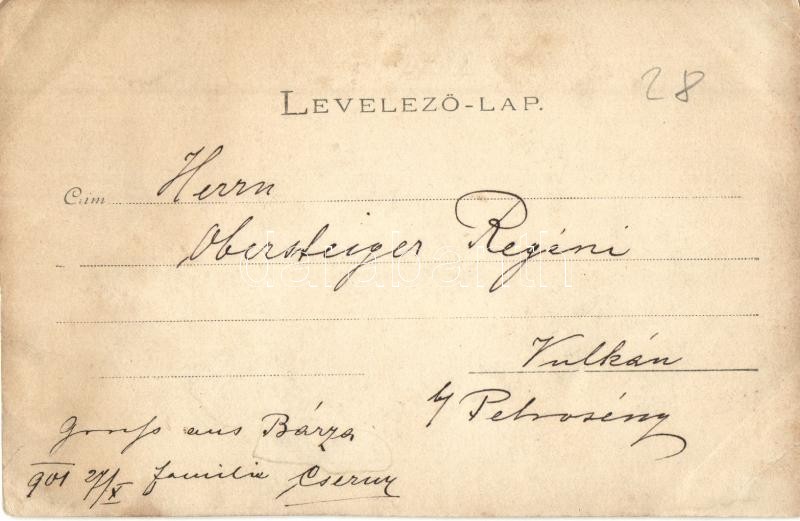 LEVELEZŐ-LAP.
28
Czím Herrn
Obersteiger Regéni
Vulkán
b/ Petrosény
Gruß aus Bárza
901 27/X familie Cserny